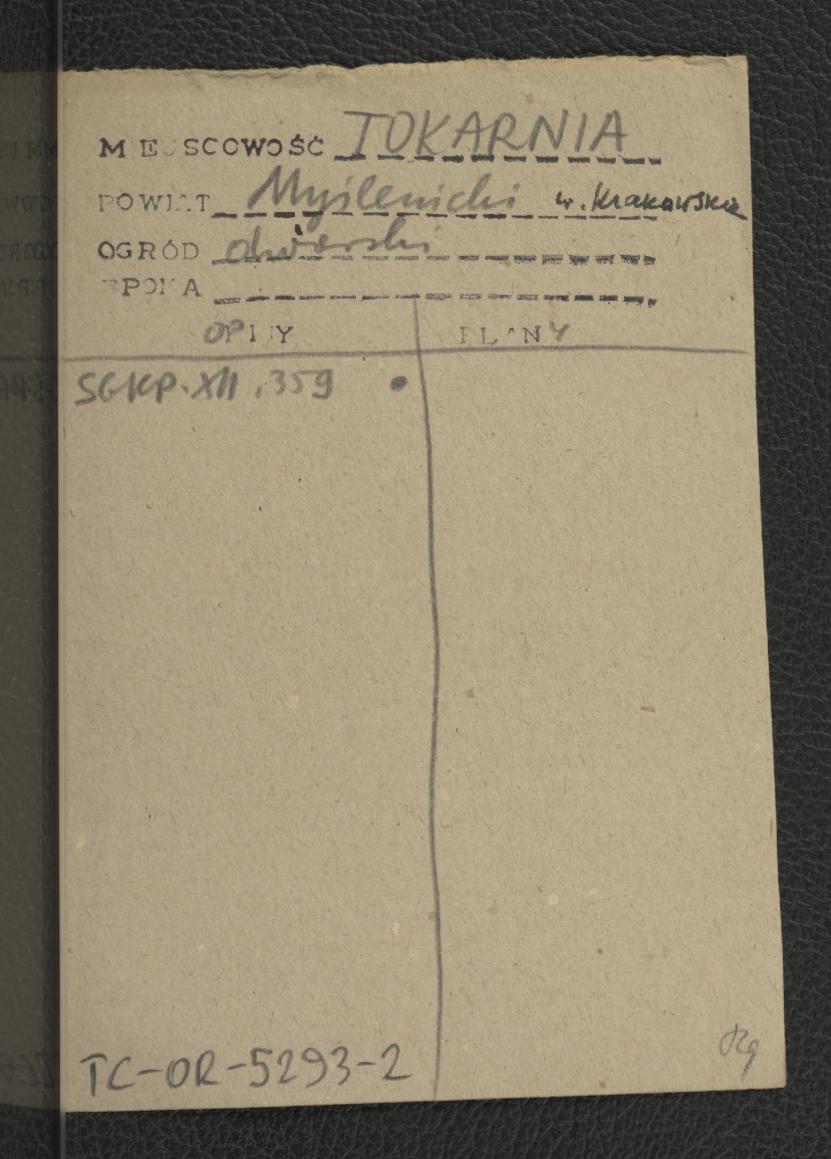 MIEJSCOWOŚĆ TOKARNIA
POWIAT Myślenicki w. Krakowskie
OGRÓD dworski
EPOKA
OPISY PLANY
SGKP. XII. 359
TC-OR-5293-2